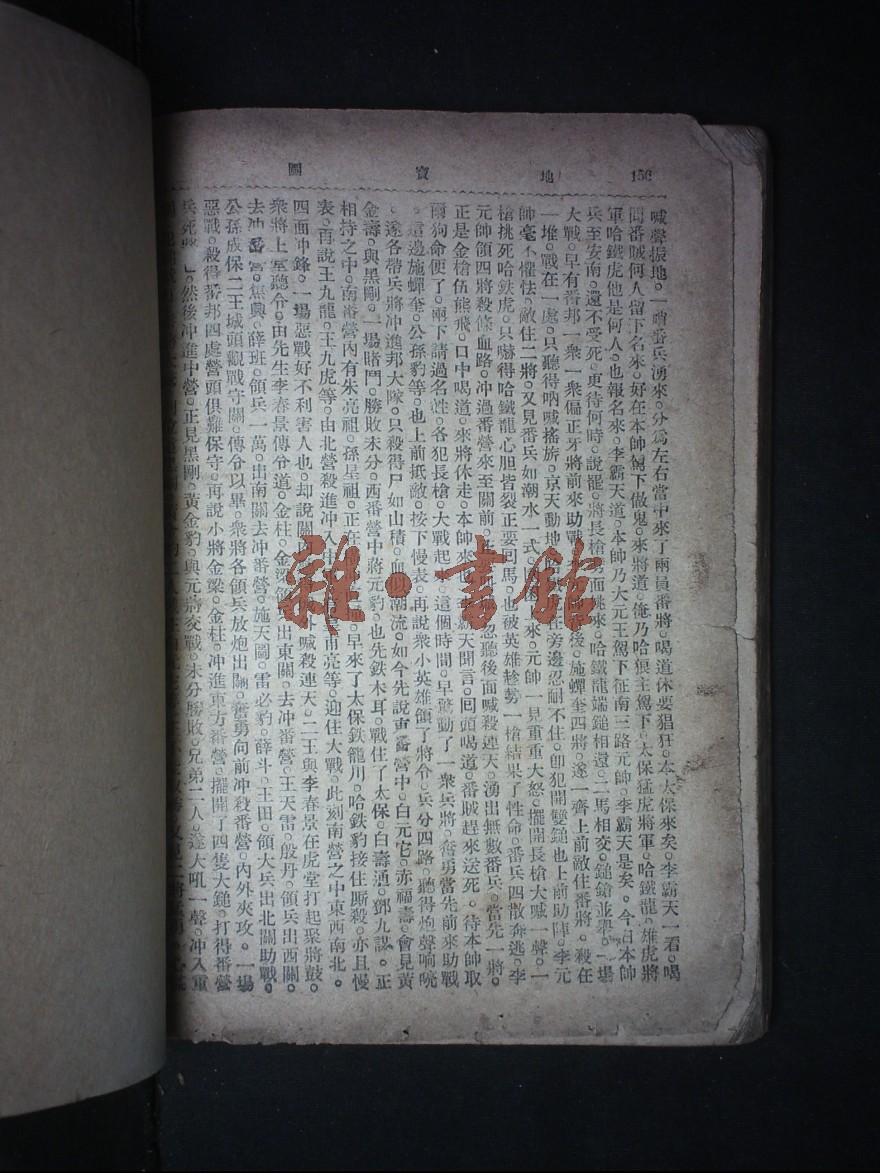 156 地寶圖
喊聲振地。一哨番兵湧來。分為左右當中來了兩員番將。喝道休要猖狂。本太保來矣。李霸天一看。喝
問番賊何人留下名來。好在本帥鎗下做鬼。來將道。俺乃哈狼主駕下。太保猛虎將軍。哈鐵龍。雄虎將
軍哈鐵虎他是何人。也報名來。李霸天道。本帥乃大元王駕下征南三路元帥。李霸天是矣。今日本帥
兵至安南。還不受死。更待何時。說罷。將長槍 面挑來。哈鐵龍端鎚相還。二馬相交。鎚鎗並舉。一場
大戰。早有番邦一衆一衆偏正牙將前來助戰 後。施蟬奎四將。遂一齊上前敵住番將。殺在
一堆。戰在一處。只聽得吶喊搖旂。京天動地 旁邊忍耐不住。卽犯開雙鎚也上前助陣。李元
帥毫不懼怯。敵住二將。又見番兵如潮水一式 來。元帥一見重重大怒。擺開長槍大喊一聲。一
槍挑死哈鉄虎。只嚇得哈鐵龍心胆皆裂正要回馬。也被英雄趁勢一槍結果了性命。番兵四散奔逃。李
元帥領四將殺條血路。冲過番營來至關前 忽聽後面喊殺連天。湧出無數番兵。當先一將。
正是金槍伍熊飛。口中喝道。來將休走。本帥來也 霸天聞言。囘頭喝道。番賊趕來送死。待本帥取
爾狗命便了。兩下請過名姓。各犯長槍。大戰起 這個時間。早驚動了一衆兵將。奮勇當先前來助戰
這邊施蟬奎。公孫豹等。也上前抵敵。按下慢表。再說衆小英雄領了將令。兵分四路。聽得炮聲响喨
。遂各帶兵將冲進邦大隊。只殺得尸如山積。血似潮流。如今先說東番營中。白元它。赤福壽。會見黃
金壽。與黑剛。一場賭鬥。勝敗未分。西番營中蔣元豹。也先鉄木耳。戰住了太保。白壽通。鄧九謀。正
相持之中。南番營內有朱亮祖。孫星祖。正在 早來了太保鉄籠川。哈鉄豹接住厮殺。亦且慢
表。再說王九龍。王九虎等。由北營殺進冲入中 甫亮等。迎住大戰。此刻南營之中東西南北。
四面冲鋒。一場惡戰好不利害人也。却說關內 外喊殺連天。二王與李春景在虎堂打起聚將鼓。
衆將上堂聽令。由先生李春景傳令道。金柱。金梁領 出東關。去冲番營。王天雷。般丹。領兵出西關。
去冲番營。焦興。薛班。領兵一萬。出南關去冲番營。施天圖。雷必豹。薛斗。王田。領大兵出北關助戰。
公孫成保二王城頭觀戰守關。傳令以畢。衆將各領兵放炮出關。奮勇向前冲殺番營。內外夾攻。一場
惡戰。殺得番邦四處營頭俱難保守。再說小將金梁。金柱。冲進東方番營。擺開了四隻大鎚。打得番營
兵死 。然後冲進中營。正見黑剛。黃金豹。與元將交戰。未分勝敗。兄弟二人。遂大吼一聲。冲入重
雜·書館